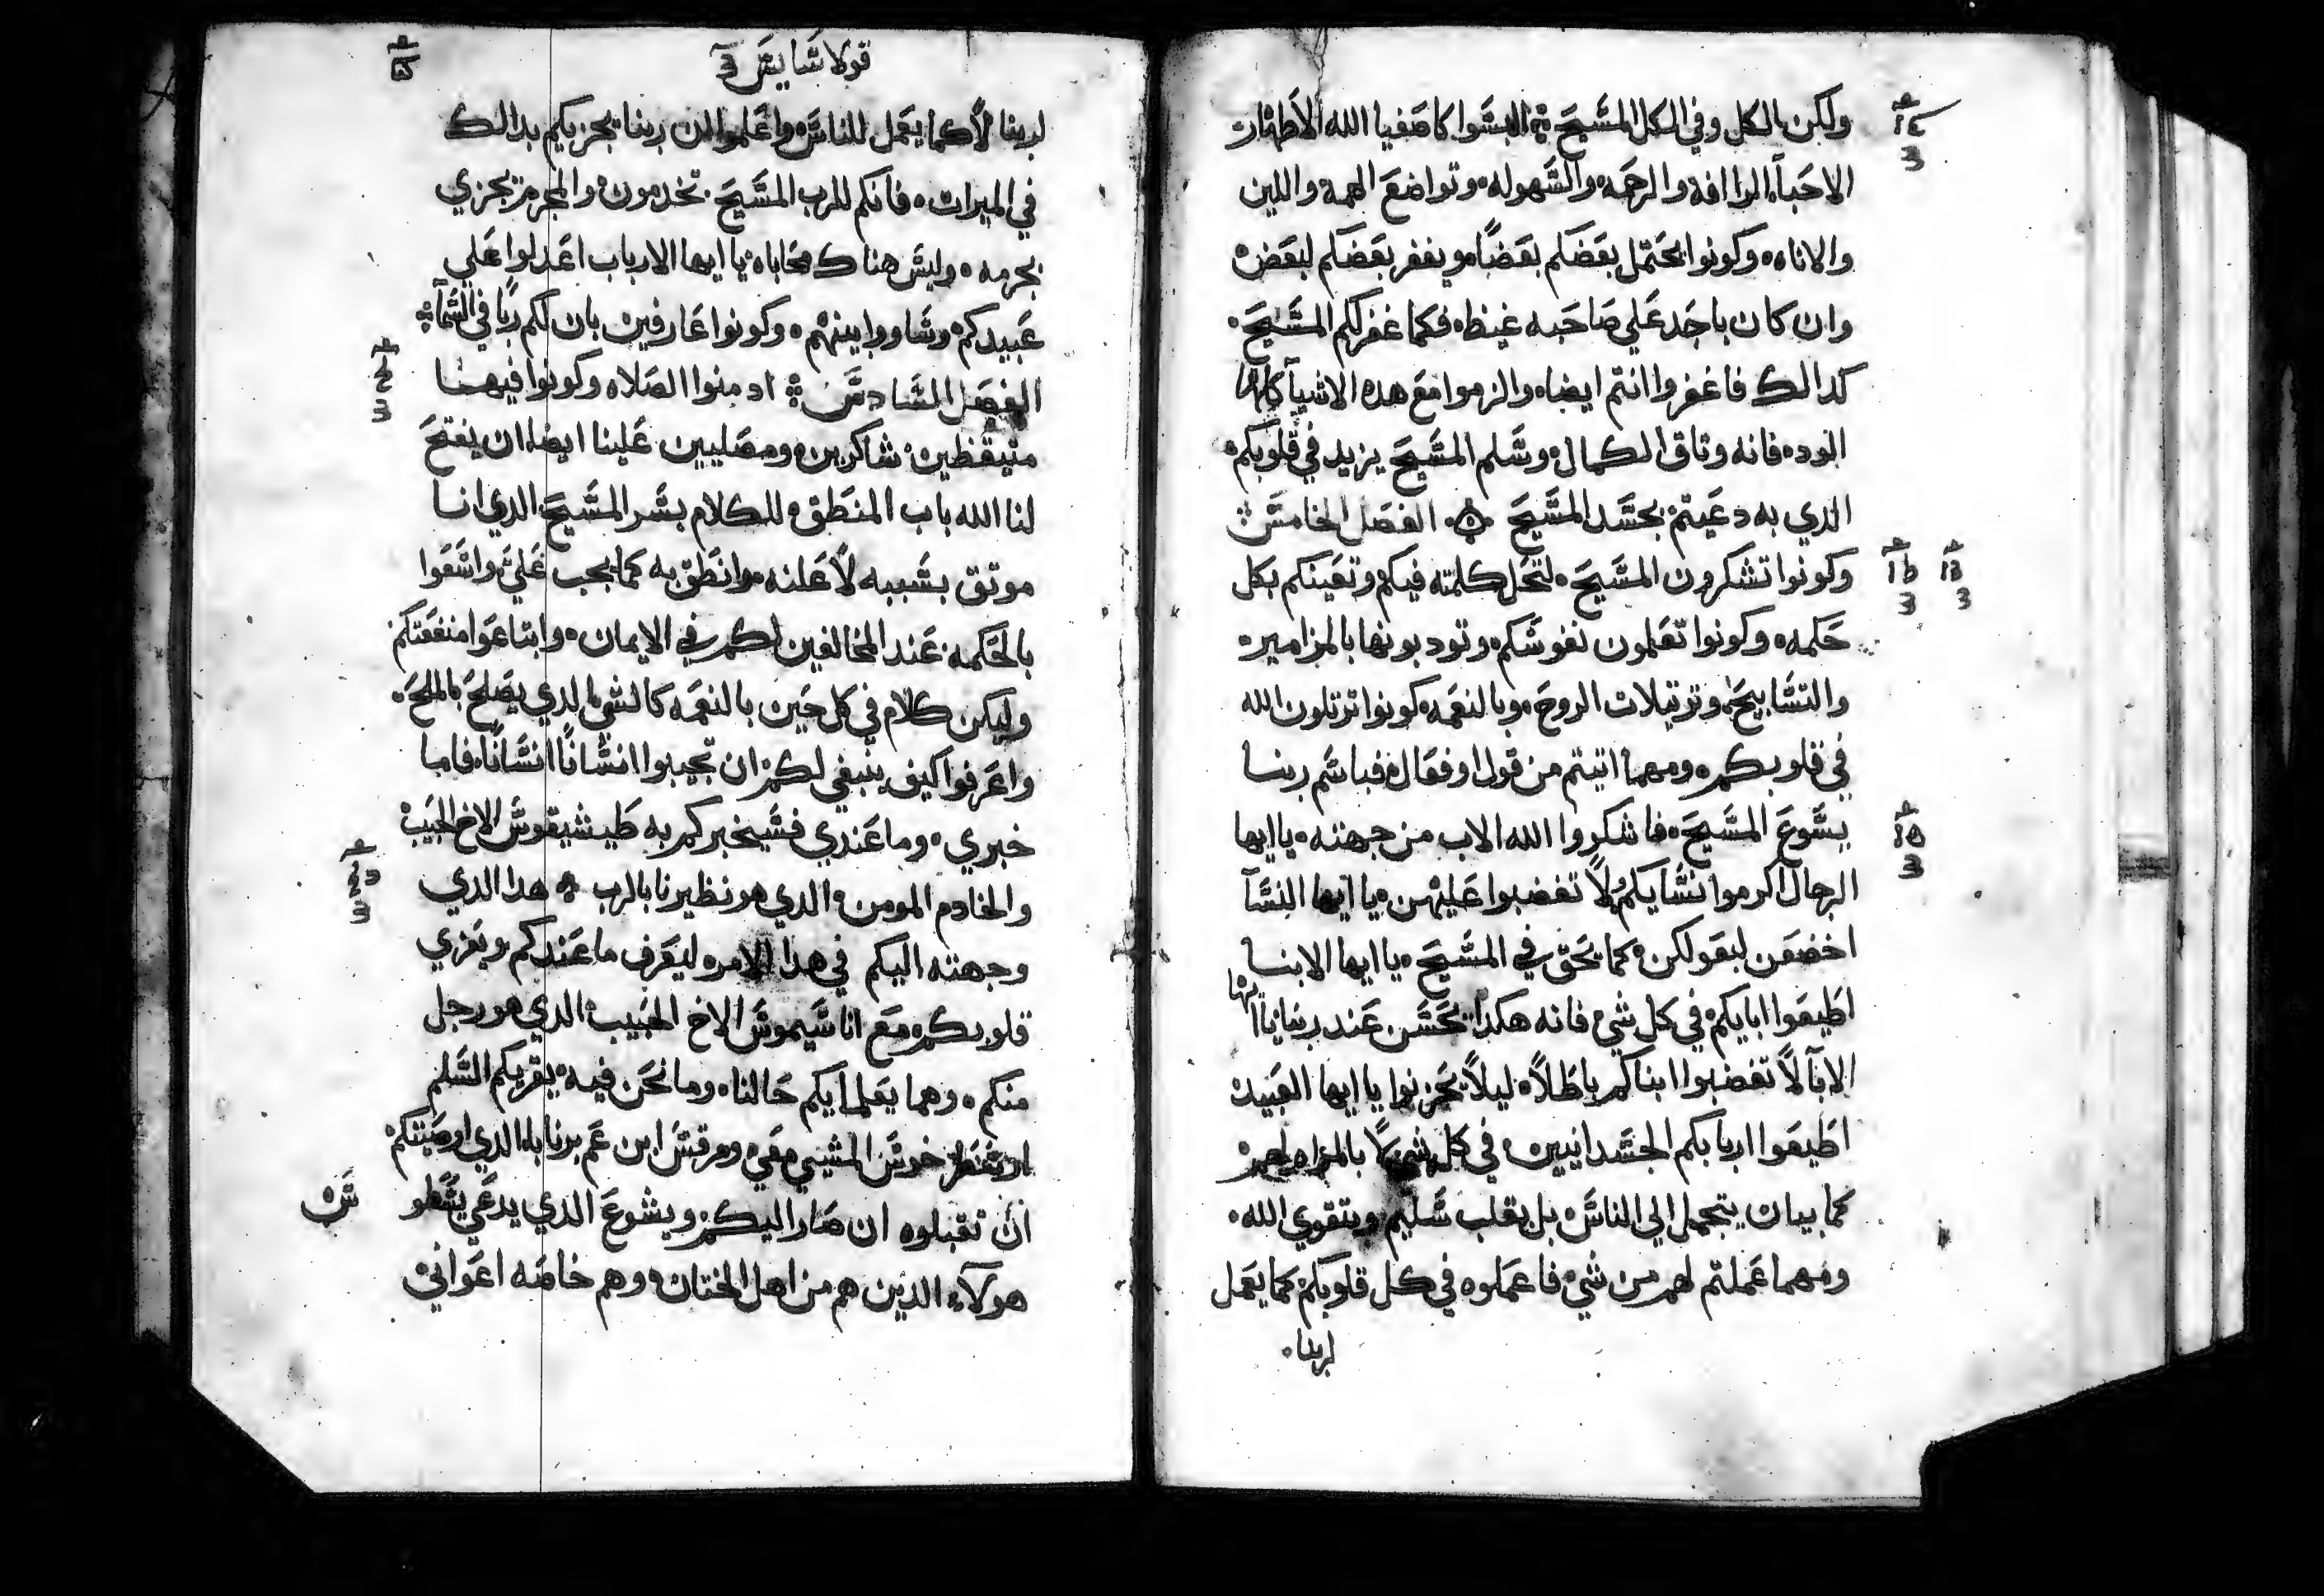 ولكن بالكل وفي الكل المسيح البسوا كاصفيا الله الاطهار
الاحباء الراافه والرحمه والسهوله وتواضع الهمة واللين
والاناه وكونوا يحتمل بعضكم بعضًا ويغفر بعضكم لبعض
وان كان باحد علي صاحبه غيظ فكما غفر لكم المسيح
كدالك فاغفروا انتم ايضا والزموا مع هده الاشيآ كلها
الوده فانه وتاق الكمال وسلم المسيح يزيد في قلوبكم
الدي به دعيتم بجسد المسيح الفصل الخامس
وكونوا تشكرون المسيح لتحل كلمته فيكم وتعينكم بكل
حكمه وكونوا تعلمون نفوسكم وتودبونها بالمزامير
والتسابيح وترتيلات الروح وبالنعمه كونوا ترتلون الله
في قلوبكم ومهما اتيتم من قول او فعال فباسم ربنا
يسوع المسيح فاشكروا الله الاب من جهته يا ايها
الرجال اكرموا نسايكم ولا تغضبوا عليهن يا ايها النسآ
اخضعن لبعولكن كما يحق في المسيح يا ايها الابنا
اطيعوا ابايكم في كل شي فانه هكدا يحسن عند ربنا يا ايها
الابآ لا تغضبوا ابناكم باطلاً ليلا يحزنوا يا ايها العبيد
اطيعوا اربابكم الجسدانيين في كل شي لا بالمراه لهم
كما يبان يتجمل الي الناس بل بقلب سليم وبتقوي الله
ومهما عملتم لهم من شي فاعملوه في كل قلوبكم كما يعمل
لربنا
قولاسايس
لربنا لا كما يعمل للناس واعلموا ان ربنا يجزيكم بدالك
في الميرات فانكم للرب المسيح تخدمون والمجرم يجزي
بجرمه وليس هناك محاباه يا ايها الارباب اعدلوا علي
عبيدكم وساووا بينهم وكونوا عارفين بان لكم ربًا في السمآ
الفصل السادس ادمنوا الصلاه وكونوا فيها
متيقظين شاكرين ومصليين علينا ايضا ان يفتح
لنا الله باب المنطق للكلام بسر المسيح الدي انا
موتق بسببه لاعلنه وانطق به كما يجب علي واسعوا
بالحكمه عند المخالفين لكم في الايمان وابتاعوا منفعتكم
وليكن كلام في كل حين بالنعمه كالشي الدي يصلح بالملح
واعرفوا كيف ينبغي لكم ان تجيبوا انسانًا انسانًا فاما
خبري وما عندي فسيخبركم به طيشيقوس الاخ الحبيب
والخادم المومن الدي هو نظيرنا بالرب هدا الدي
وجهته اليكم في هدا الامر ليعرف ما عندكم ويعزي
قلوبكم مع اناسيموس الاخ الحبيب الدي هو رجل
منكم وهما يعلمايكم حالنا وما نحن فيه يقريكم السلم
ارسطرخوس المشبي معي ومرقس ابن عم برنابا الدي اوصيتكم
ان تقبلوه ان صار اليكم ويشوع الدي يدعي يسطو
س
هولآء الدين هم من اهل الختان وهم خاصه اعواني